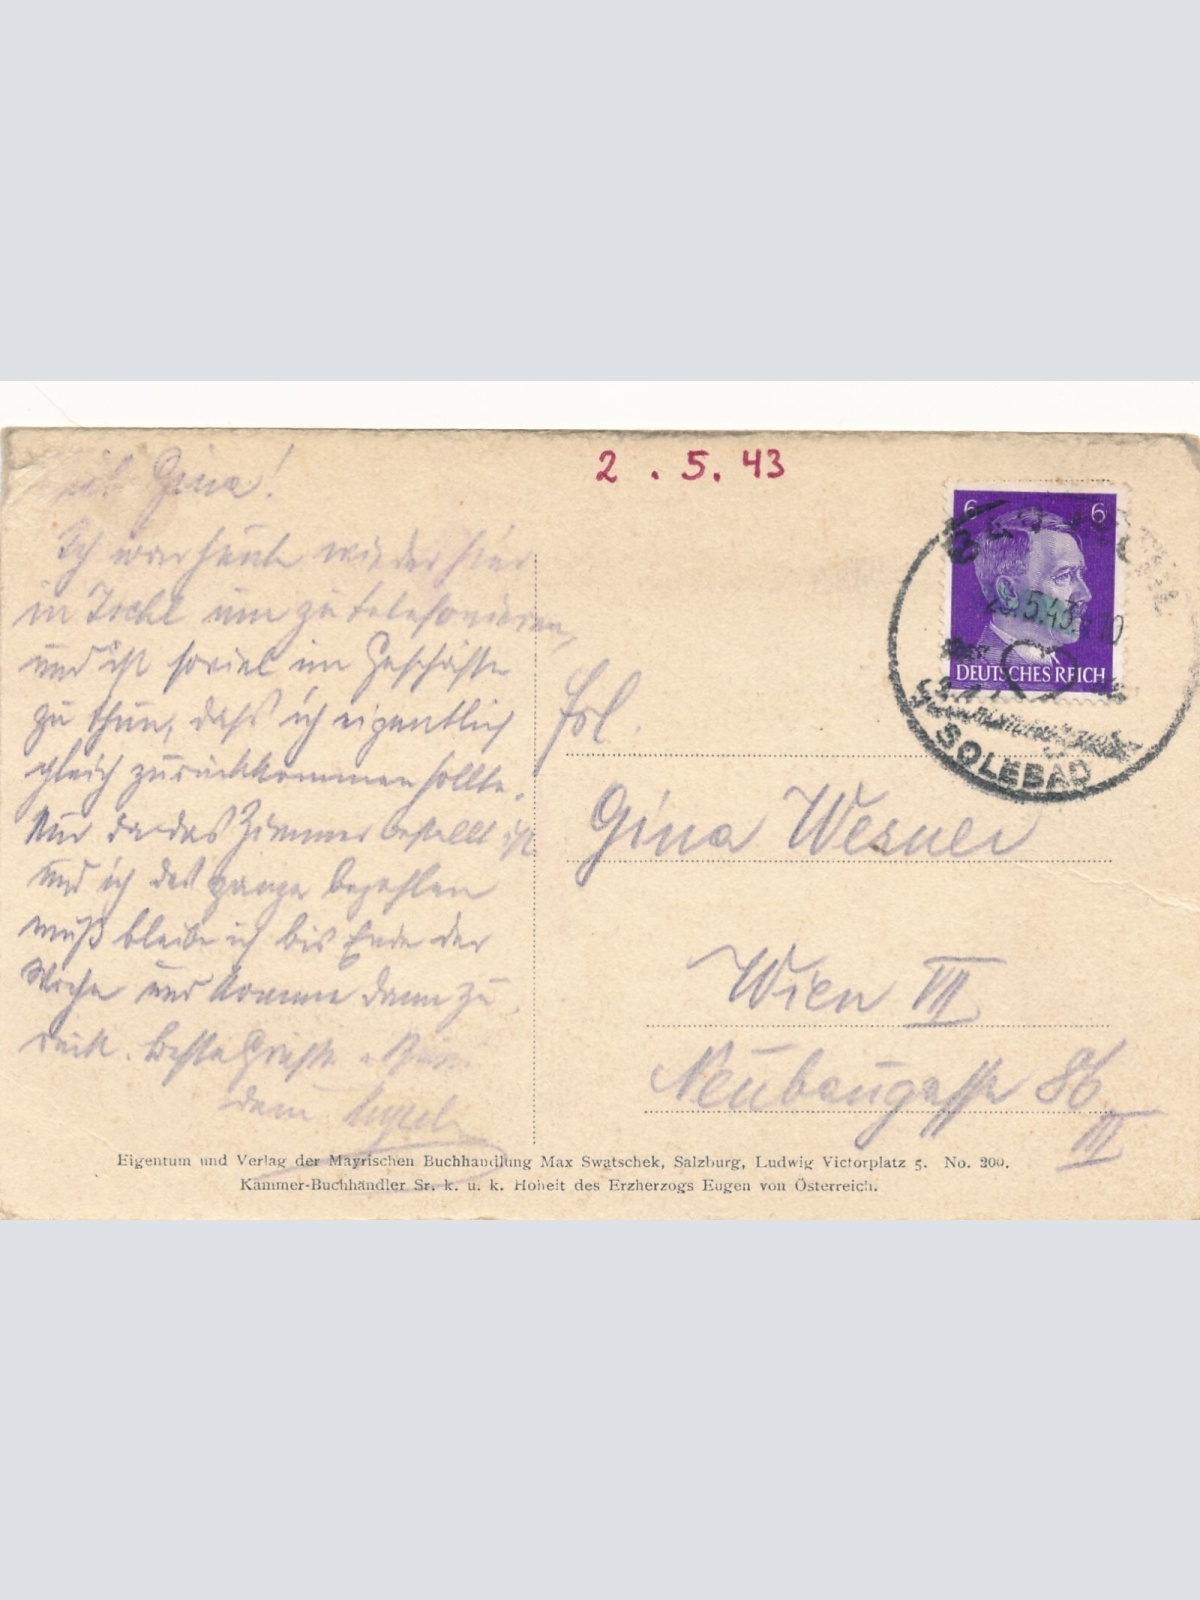 2 . 5. 43
Gina!
Ich war heute wieder hier
in Ischl um zu telefonieren,
und ist soviel im Geschäfte
zu thun, daß ich eigentlich
gleich zurückkommen sollte.
Nur da das Zimmer bestellt ist
und ich das ganze bezahlen
muß bleibe ich bis Ende der
Woche und komme dann zu
rück. Beste Grüße
Dein
6 6
DEUTSCHES REICH
.5.43.
SOLEBAD
Frl.
Gina Wesner
Wien VII
Neubaugasse 86
III
Eigentum und Verlag der Mayrischen Buchhandlung Max Swatschek, Salzburg, Ludwig Victorplatz 5. No. 200.
Kammer-Buchhändler Sr. k. u. k. Hoheit des Erzherzogs Eugen von Österreich.